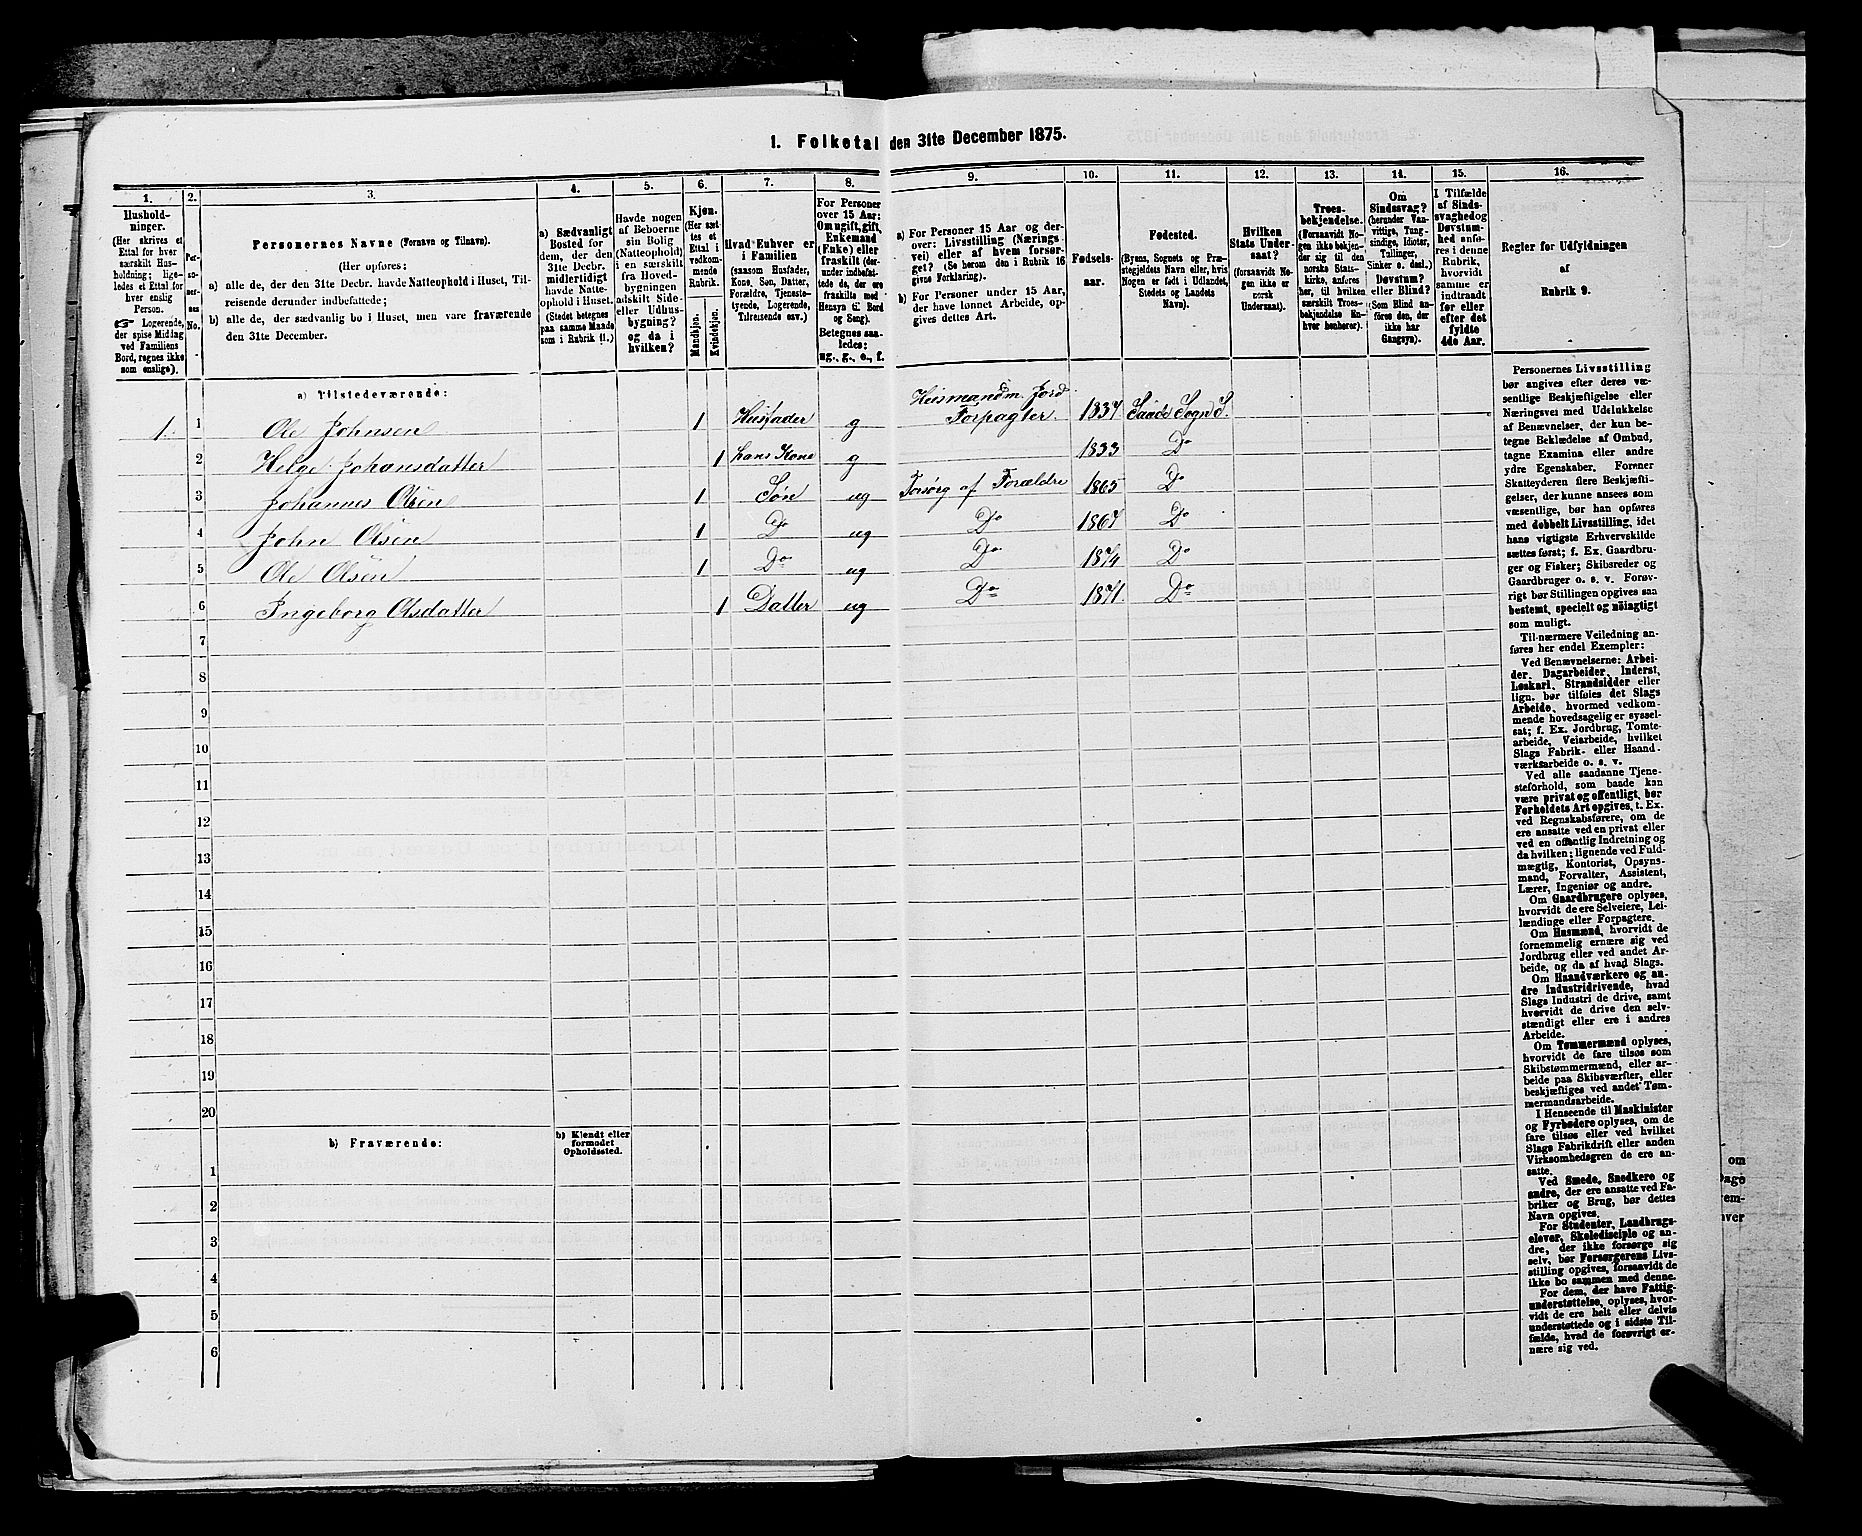 1. Folketal den 31te December 1875.
1.
2.
3.
4.
5.
6.
7.
8.
9.
10.
11.
12.
13.
14.
15.
16.
Hushold-
ninger.
(Her skrives et
Ettal for hver
særskilt Hus-
holdning; lige-
ledes et Ettal for
hver enslig
Person.
☞ Logerende,
der spise Middag
ved Familiens
Bord, regnes ikke
som enslige).
Per-
so-
ner-
nes
No.
Personernes Navne (Fornavn og Tilnavn).
(Her opføres:
a) alle de, der den 31te Decbr. havde Natteophold i Huset, Til-
reisende derunder indbefattede;
b) alle de, der sædvanlig bo i Huset, men vare fraværende
den 31te December.
a) Sædvanligt
Bosted for
dem, der den
31te Decbr.
midlertidigt
havde Natte-
ophold i Huset.
(Stedet betegnes
paa samme Maade
som i Rubrik 11.)
Havde nogen
af Beboerne
sin Bolig
(Natteophold)
i en særskilt
fra Hoved-
bygningen
adskilt Side-
eller Udhus-
bygning?
og da i
hvilken?
Kjøn.
(Her sæt-
tes et
Ettal i
vedkom-
mende
Rubrik.
Mandkjøn.
Kvindekjøn.
Hvad Enhver er
i Familien
(saasom Husfader,
Kone, Søn, Datter,
Forældre, Tjeneste-
tyende, Logerende,
Tilreisende osv.)
For Personer
over 15 Aar:
Om ugift, gift,
Enkemand
(Enke) eller
fraskilt (der-
under indbefat-
tede de, der ere
fraskilte med
Hensyn til Bord
og Seng).
Betegnes saa-
ledes:
ug., g., e., f.
a) For Personer 15 Aar og der-
over: Livsstilling (Nærings-
vei) eller af hvem forsør-
get? (Se herom den i Rubrik 16
givne Forklaring).
b) For Personer under 15 Aar,
der have lønnet Arbeide, op-
gives dettes Art.
Fødsels-
aar.
Fødested.
(Byens, Sognets og Præ-
stegjeldets Navn eller, hvis
Nogen er født i Udlandet,
Stedets og Landets
Navn).
Hvilken
Stats Under-
saat?
(forsaavidt No-
gen ikke er
norsk
Undersaat).
Troes-
bekjendelse.
(Forsaavidt No-
gen ikke bekjen-
der sig til den
norske Stats-
kirke, anføres
her, til hvilken
særskilt Troes-
bekjendelse En-
hver henhører).
Om
Sindssvag?
(herunder Van-
vittige, Tung-
sindige, Idioter,
Tullinger,
Sinker o. desl.)
Døvstum?
eller Blind?
(Som Blind an-
føres den, der
ikke har
Gangsyn).
I Tilfælde
af Sinds-
svaghed og
Døvstum-
hed anfø-
res i denne
Rubrik,
hvorvidt
samme er
indtraadt
før eller
efter det
fyldte
4de Aar.
Regler for Udfyldningen
af
Rubrik 9.
a) Tilstedeværende:
1 1 Ole Johnsen 1 Husfader g Husmand m. Jord Forpagter. 1837 Sogn
2 Helge Johansdatter 1 hans Kone g 1833 Do
3 Johannes Olsen 1 Søn ug Forsørg af Forældre 1865 Do
4 John Olsen 1 Do ug Do 1867 Do
5 Ole Olsen 1 Do ug Do 1874 Do
6 Ingeborg Olsdatter 1 Datter ug Do 1871. Do
7
8
9
10
11
12
13
14
15
16
17
18
19
20
b) Fraværende:
b) Kjendt eller
formodet
Opholdssted.
1
2
3
4
5
6
Personernes Livsstilling
bør angives efter deres væ-
sentlige Beskjæftigelse eller
Næringsvei med Udelukkelse
af Benævnelser, der kun be-
tegne Beklædelse af Ombud,
tagne Examina eller andre
ydre Egenskaber. Forener
Skatteyderen flere Beskjæfti-
gelser, der kunne ansees som
væsentlige, bør han opføres
med dobbelt Livsstilling, idet
hans vigtigste Erhvervskilde
sættes først; f. Ex. Gaardbru-
ger og Fisker; Skibsreder og
Gaardbruger o. s. v. Forøv-
rigt bør Stillingen opgives saa
bestemt, specielt og nöiagtigt
som muligt.
Til nærmere Veiledning an-
føres her endel Exempler:
Ved Benævnelserne: Arbei-
der, Dagarbeider, Inderst,
Løskarl, Strandsidder eller
lign. bør tilføies det Slags
Arbeide, hvormed vedkom-
mende hovedsagelig er syssel-
sat; f. Ex. Jordbrug, Tomte-
arbeide, Veiarbeide, hvilket
Slags Fabrik- eller Haand-
værksarbeide o. s. v.
Ved alle saadanne Tjene-
steforhold, som baade kan
være privat og offentligt, bør
Forholdets Art opgives, t. Ex.
ved Regnskabsførere, om de
ere ansatte ved en privat eller
ved en offentlig Indretning og
da hvilken; lignende ved Fuld-
mægtig, Kontorist, Opsyns-
mand, Forvalter, Assistent,
Lærer, Ingeniør og andre.
Om Gaardbrugere oplyses,
hvorvidt de ere Selveiere, Lei-
lændinge eller Forpagtere.
Om Husmænd, hvorvidt de
fornemmelig ernære sig ved
Jordbrug eller ved andet Ar-
beide, og da af hvad Slags.
Om Haandværkere og an-
dre Industridrivende, hvad
Slags Industri de drive, samt
hvorvidt de drive den selv-
stændigt eller ere i andres
Arbeide.
Om Tømmermænd oplyses,
hvorvidt de fare tilsøs som
Skibstømmermænd, eller ar-
beide paa Skibsværfter, eller
beskjæftiges ved andet Tøm-
mermandsarbeide.
I Henseende til Maskinister
og Fyrbødere oplyses, om de
fare tilsøs eller ved hvilket
Slags Fabrikdrift eller anden
Virksomhedsgren de ere an-
satte.
Ved Smede, Snedkere og
andre, der ere ansatte ved Fa-
briker og Brug, bør dettes
Navn opgives.
For Studenter, Landbrugs-
elever, Skoledisciple og an-
dre, der ikke forsørge sig
selv, bør Forsørgerens Livs-
stilling opgives, forsaavidt de
ikke bo sammen med denne.
For dem, der have Fattig-
understøttelse, oplyses, hvor-
vidt de ere helt eller delvis
understøttede og i sidste Til-
fælde, hvad de forøvrigt er-
nære sig ved.